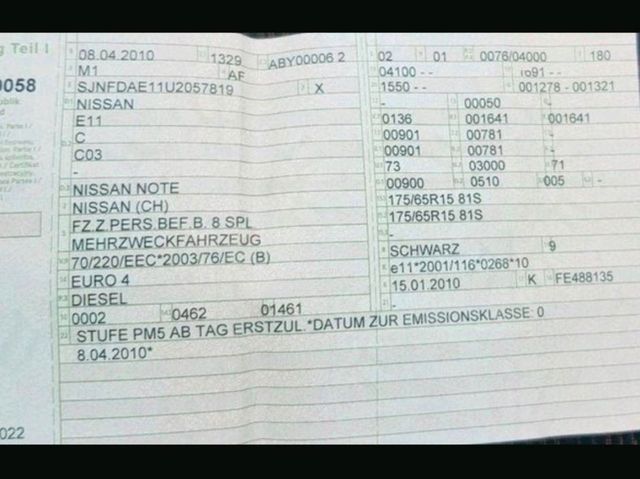 g Teil I
0058
022
08.04.2010 1329 ABY00006 2
M1 AF
SJNFDAE11U2057819 X
NISSAN
E11
C
C03
-
NISSAN NOTE
NISSAN (CH)
FZ.Z.PERS.BEF.B. 8 SPL
MEHRZWECKFAHRZEUG
70/220/EEC*2003/76/EC (B)
EURO 4
DIESEL
0002 0462 01461
STUFE PM5 AB TAG ERSTZUL.*DATUM ZUR EMISSIONSKLASSE: 0
8.04.2010*
02 01 0076/04000 180
04100 - - 1091 - -
1550 - - 001278 - 001321
- 00050 -
0136 001641 001641
00901 00781 -
00901 00781 -
73 03000 71
00900 0510 005 -
175/65R15 81S
175/65R15 81S
-
SCHWARZ 9
e11*2001/116*0268*10
15.01.2010 K FE488135
-